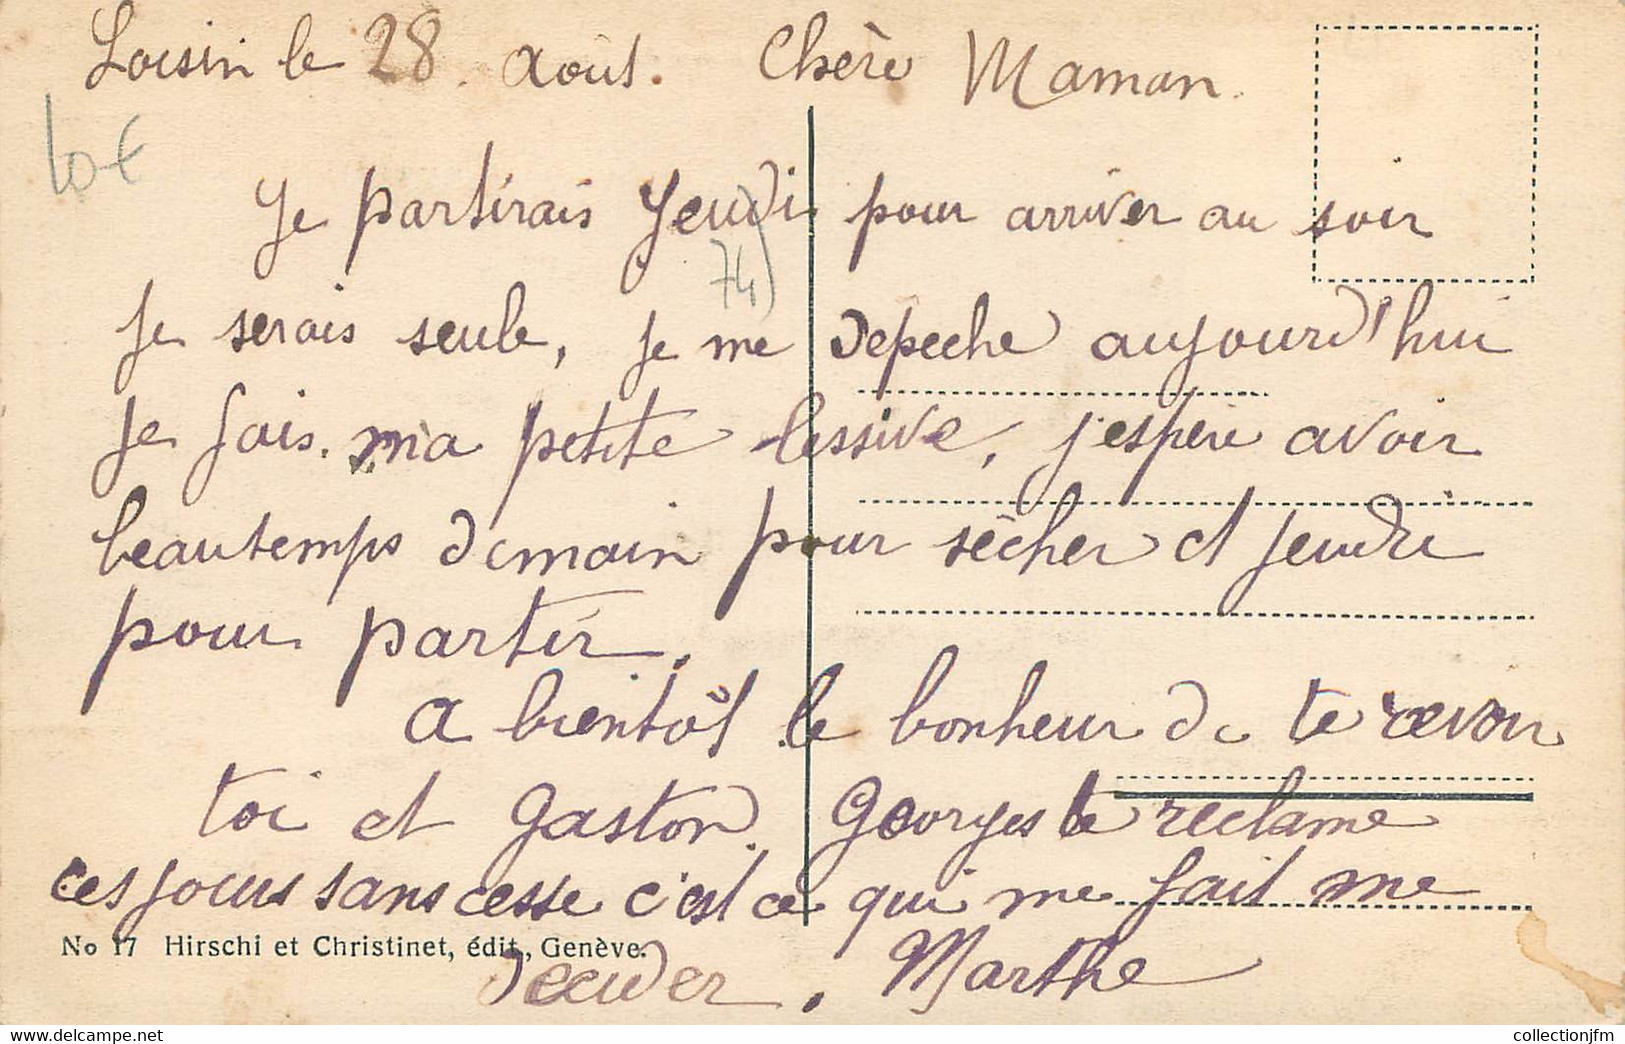 Loisin le 28 Août. Chère Maman.
10 €
Je partirais Jeudi pour arriver au soir
74)
Je serais seule, je me depeche aujourd'hui
Je fais ma petite lessive, j'espere avoir
beautemps demain pour sècher et jeudi
pour partir.
A bientôt le bonheur de te revoir
toi et Gaston. Georges te reclame
ces jours sans cesse c'est ce qui me fait me
No 17 Hirschi et Christinet, édit., Genève.
decider. Marthe
www.delcampe.net
collectionjfm